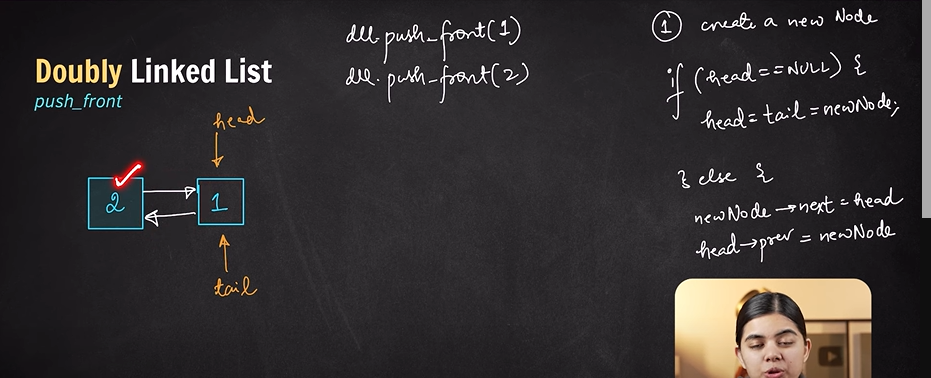 Doubly Linked List
push_front
dll.push_front(1)
dll.push_front(2)
head
2
1
tail
1 create a new Node
if (head==NULL) {
head=tail=newNode;
} else {
newNode→next=head
head→prev=newNode